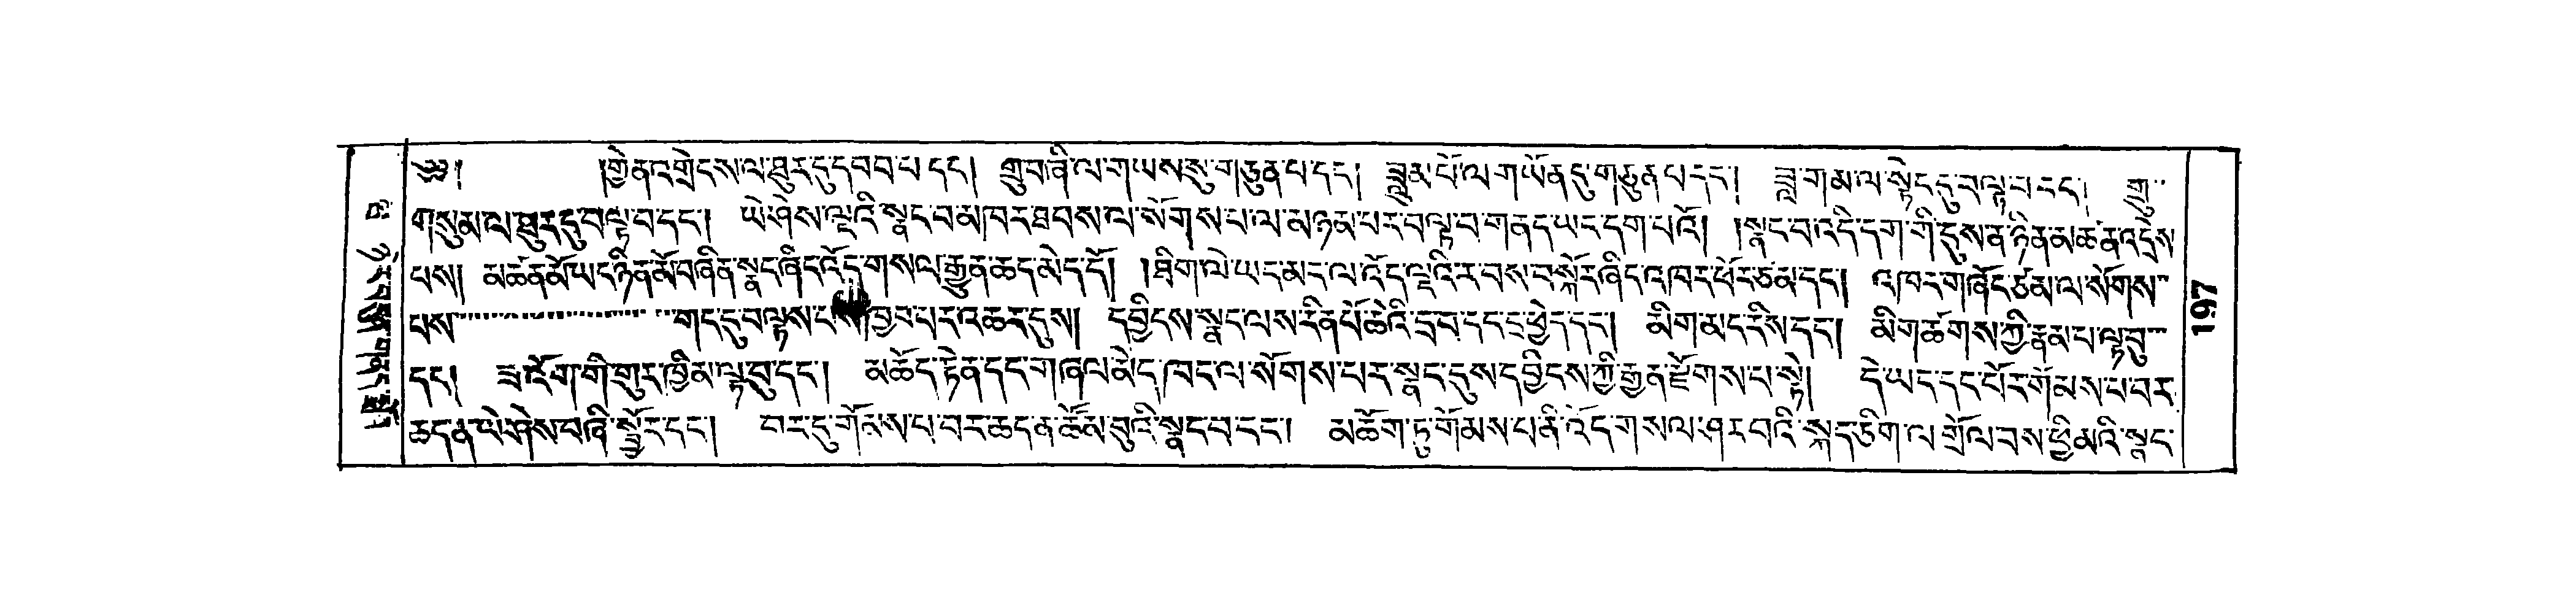 ༄༅། །གྱེན་འགྲེངས་ལ་ཐུར་དུ་དབབ་པ་དང། གྲུ་བཞི་ལ་གཡས་སུ་གཅུན་པ་དང། ཟླུམ་པོ་ལ་གཡོན་དུ་གཅུན་པ་དང། ཟླ་གམ་ལ་སྟེང་དུ་བལྟ་བ་དང། གྲུ་
གསུམ་ལ་ཐུར་དུ་བལྟ་བ་དང། ཡེ་ཤེས་ལྔའི་སྣང་བ་མཁར་ཐབས་ལ་སོགས་པ་ལ་མཉམ་པར་བལྟ་བ་གནད་ཡང་དག་པའོ། །སྣང་བ་འདི་དག་གི་དུས་ན་ཉིན་མཚན་འདྲེས་
པས། མཚན་མོ་ཡང་ཉིན་མོ་བཞིན་སྣང་ཞིང་འོད་གསལ་རྒྱུན་ཆད་མེད་དོ། །ཐིག་ལེ་ཡང་མདང་ལ་འོད་ལྔའི་ར་བས་བསྐོར་ཞིང་འཁར་ཕོར་ཙམ་དང། འཁར་གཞོང་ཙམ་ལ་སོགས་
པས གང་དུ་བལྟས་པས།ཁྱབ་པར་འཆར་དུས། དབྱིངས་སྣང་ལས་རིན་པོ་ཆེའི་དྲ་བ་དང་དྲ་ཕྱེད་དང། མིག་མང་རིས་དང། མིག་ཚོགས་ཀྱི་རྣམ་པ་ལྟ་བུ་
དང། ཟྭ་འོག་གི་གུར་ཁྱིམ་ལྟ་བུ་དང། མཆོད་རྟེན་དང་གཞལ་མེད་ཁང་ལ་སོགས་པར་སྣང་དུས་དབྱིངས་ཀྱི་རྒྱན་རྫོགས་པ་སྟེ། དེ་ཡང་དང་པོར་གོམས་པ་བར་
ཆད་ན་ཡེ་ཤེས་བཞི་སྦྱོར་དང། བར་དུ་གོམས་པ་བར་ཆད་ན་ཚོམ་བུའི་སྣང་བ་དང། མཆོག་ཏུ་གོམས་པ་ནི་འོད་གསལ་ཤར་བའི་སྐད་ཅིག་ལ་གྲོལ་བས་ཕྱི་མའི་སྣང་
761